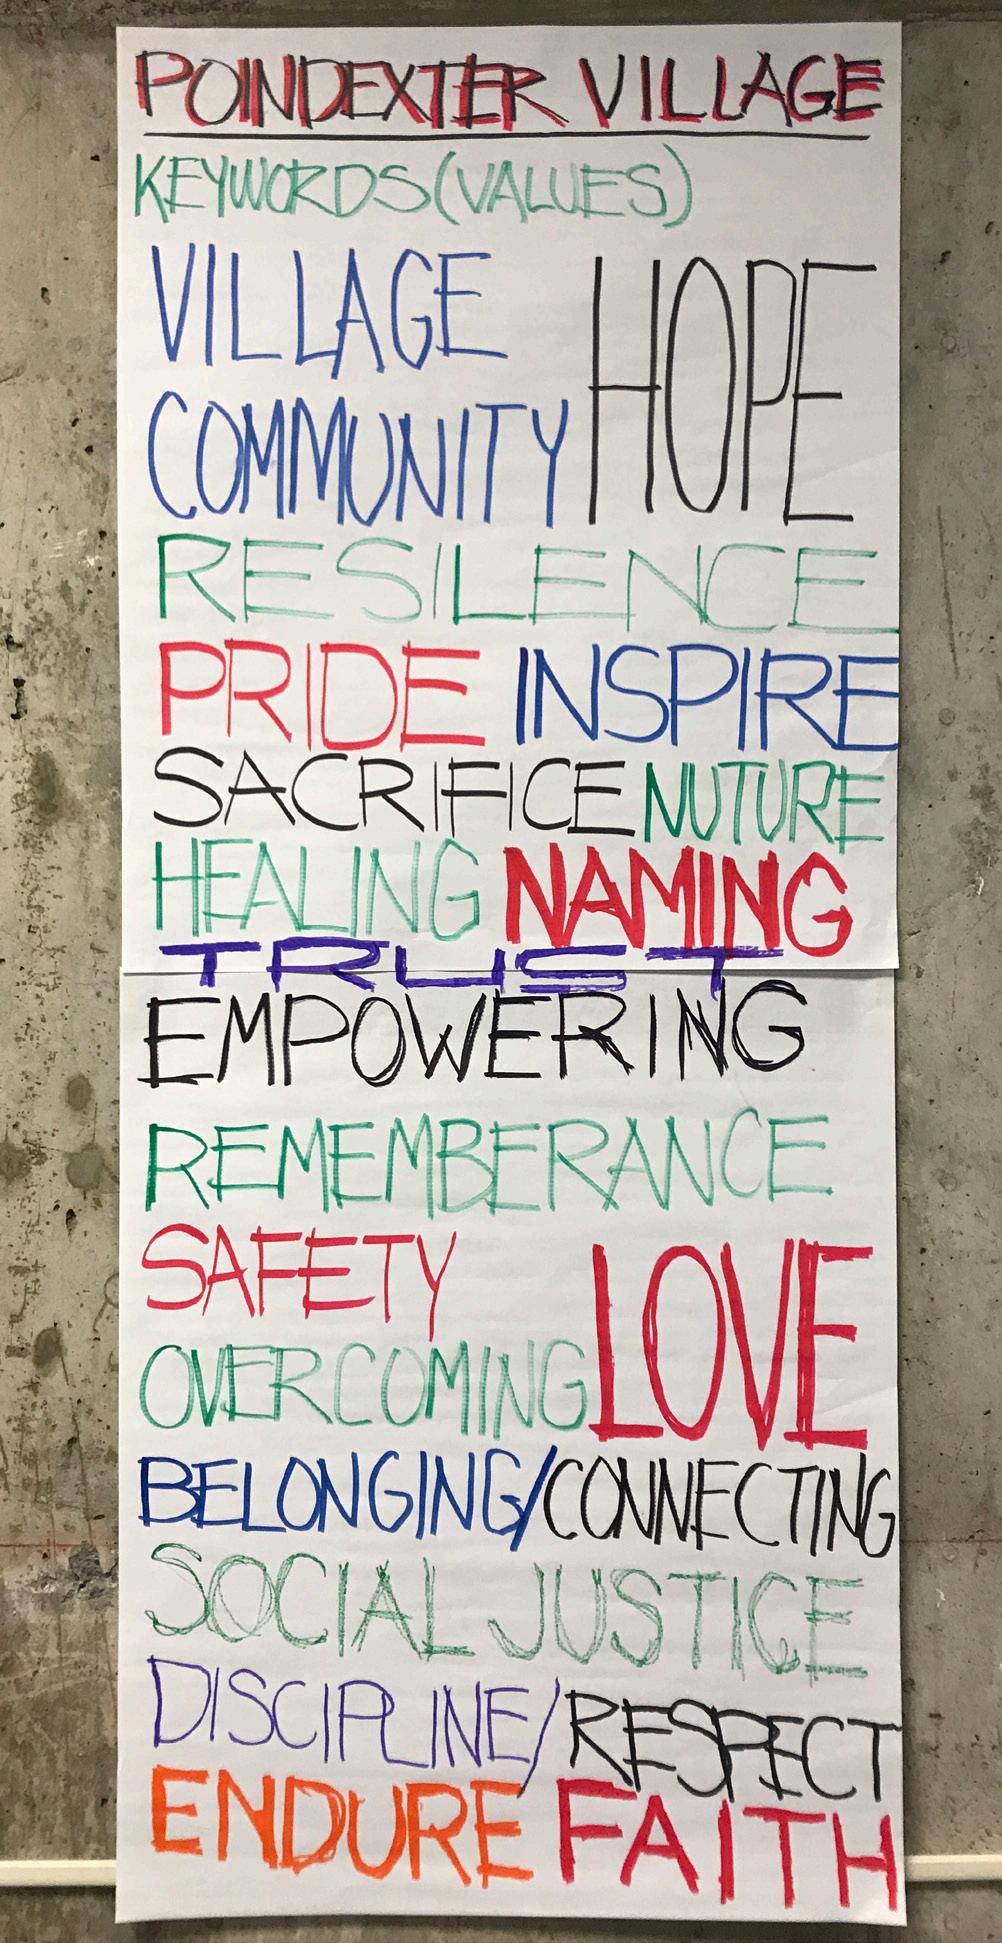 POINDEXTER VILLAGE
KEYWORDS (VALUES)
VILLAGE
HOPE
COMMUNITY
RESILENCE
PRIDE INSPIRE
SACRIFICE NUTURE
HEALING NAMING
TRUST
EMPOWERING
REMEMBERANCE
SAFETY
LOVE
OVERCOMING
BELONGING/CONNECTING
SOCIAL JUSTICE
DISCIPLINE/RESPECT
ENDURE FAITH